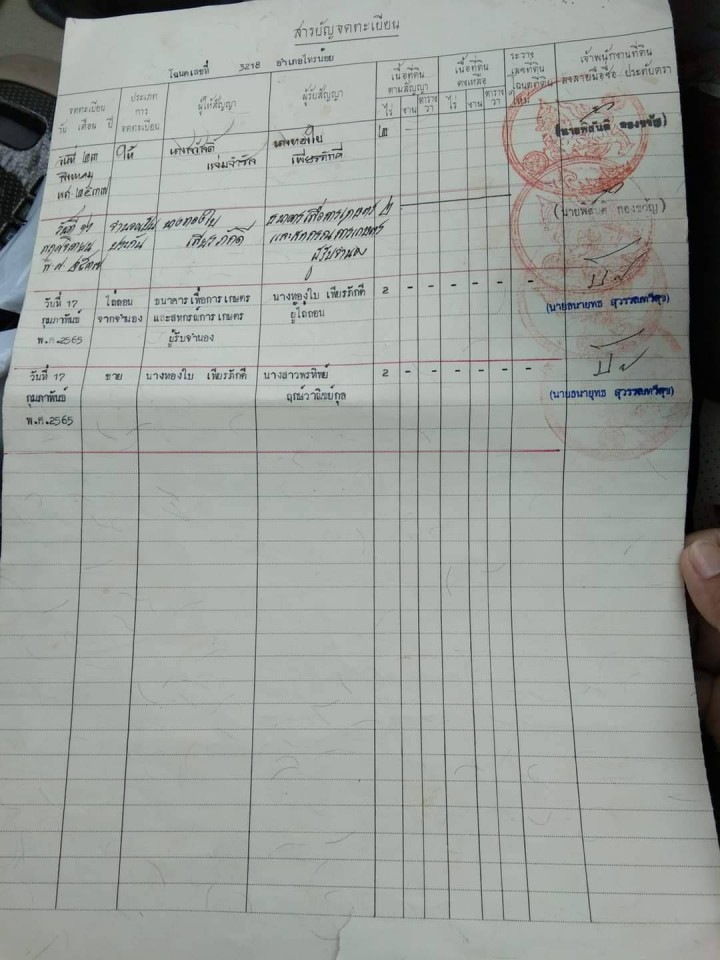 สารบัญจดทะเบียน
โฉนดเลขที่ 3218 อำเภอไทรน้อย
จดทะเบียน
วัน เดือน ปี
ประเภท
การ
จดทะเบียน
ผู้ให้สัญญา
ผู้รับสัญญา
เนื้อที่ดิน
ตามสัญญา
ไร่ งาน ตารางวา
เนื้อที่ดิน
คงเหลือ
ไร่ งาน ตารางวา
ระวาง
เลขที่ดิน
โฉนดที่ดิน
ใหม่
เจ้าพนักงานที่ดิน
ลงลายมือชื่อ ประทับตรา
วันที่ ๒๓
สิงหาคม
ให้
แจ่มจำรัส
นางทองใบ
เพียรภักดี
๒
กองขวัญ)
วันที่
พฤศจิกายน
จำนองเป็น
ประกัน
นางทองใบ
เพียรภักดี
ธนาคารเพื่อการเกษตร
และสหกรณ์การเกษตร
ผู้รับจำนอง
๒
(นายพิสนติ กองขวัญ)
วันที่ 17
กุมภาพันธ์
พ.ศ.2565
ไถ่ถอน
จากจำนอง
ธนาคารเพื่อการเกษตร
และสหกรณ์การเกษตร
ผู้รับจำนอง
นางทองใบ เพียรภักดี
ผู้ไถ่ถอน
2 - - - - - -
(นายธนายุทธ สุวรรณทวีสุข)
วันที่ 17
กุมภาพันธ์
พ.ศ.2565
ขาย
นางทองใบ เพียรภักดี
นางสาวพรทิพย์
ฤกษ์วาณิชย์กุล
2 - - - - - -
(นายธนายุทธ สุวรรณทวีสุข)